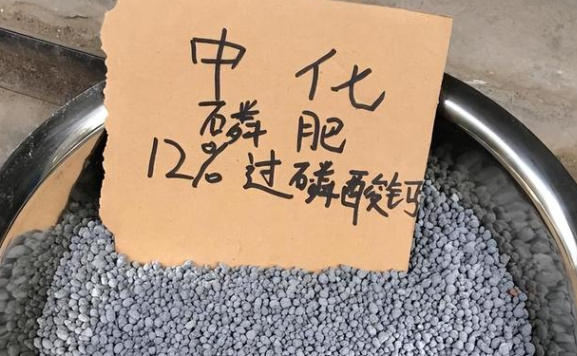 中化
磷肥
12%过磷酸钙